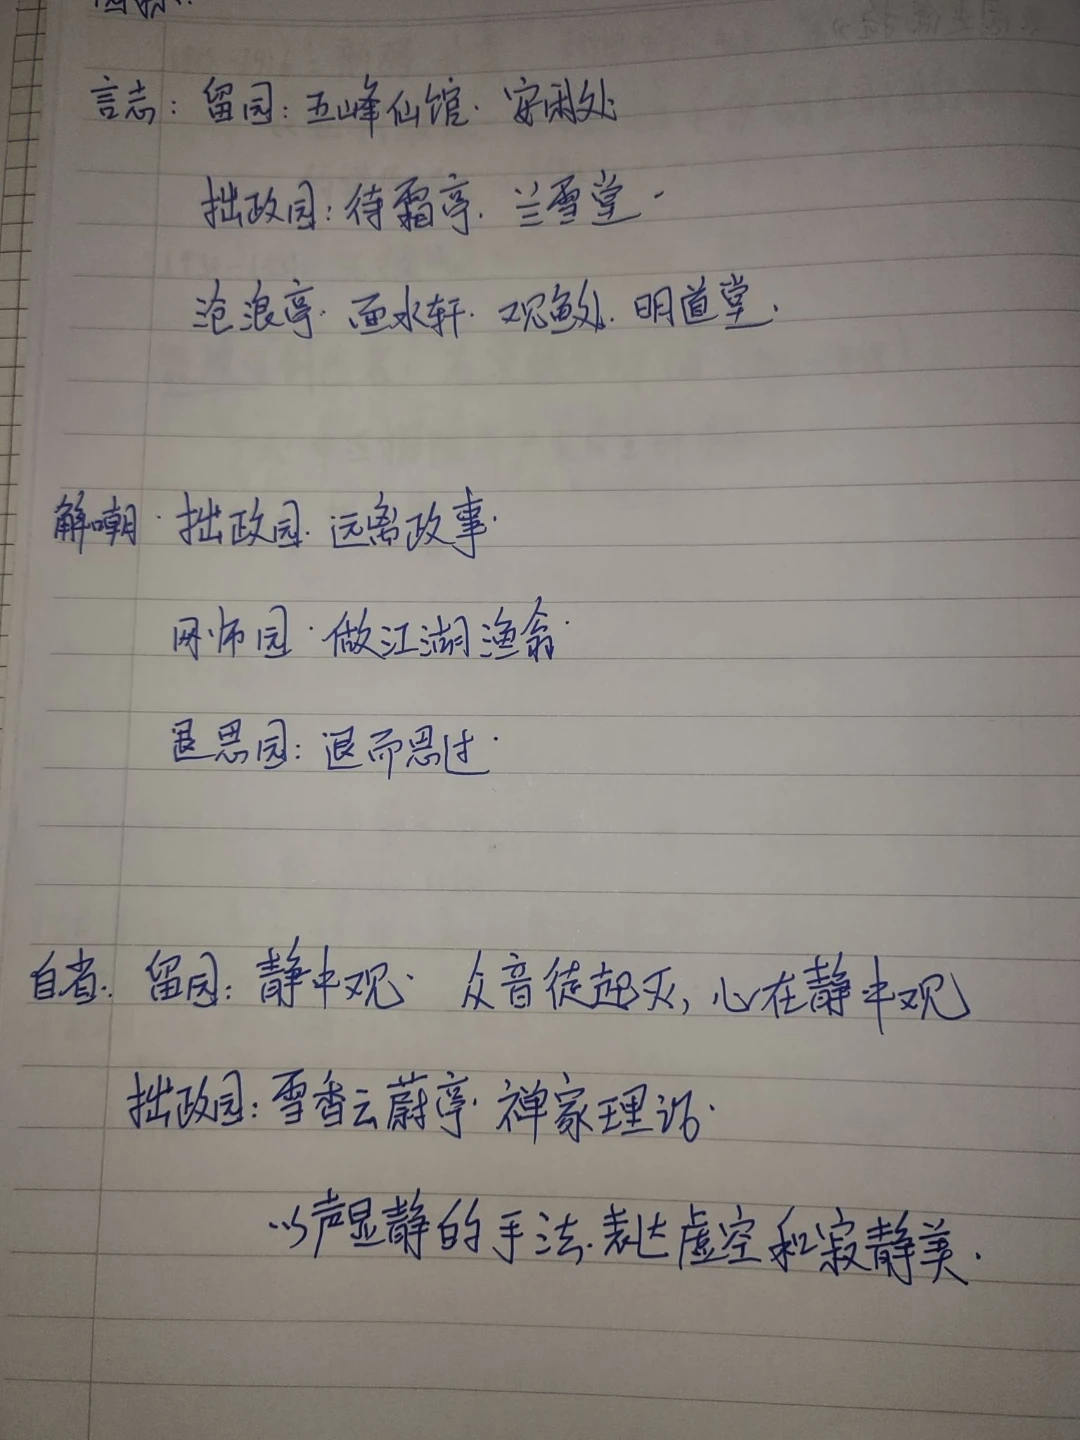 言志: 留园: 五峰仙馆. 安闲处
拙政园: 待霜亭. 兰雪堂.
沧浪亭. 面水轩. 观鱼处. 明道堂.
解嘲. 拙政园. 远离政事.
网师园. 做江湖渔翁.
退思园: 退而思过.
自省. 留园: 静中观. 众音徒起灭, 心在静中观
拙政园: 雪香云蔚亭. 禅家理论.
以声显静的手法. 表达虚空和寂静美.